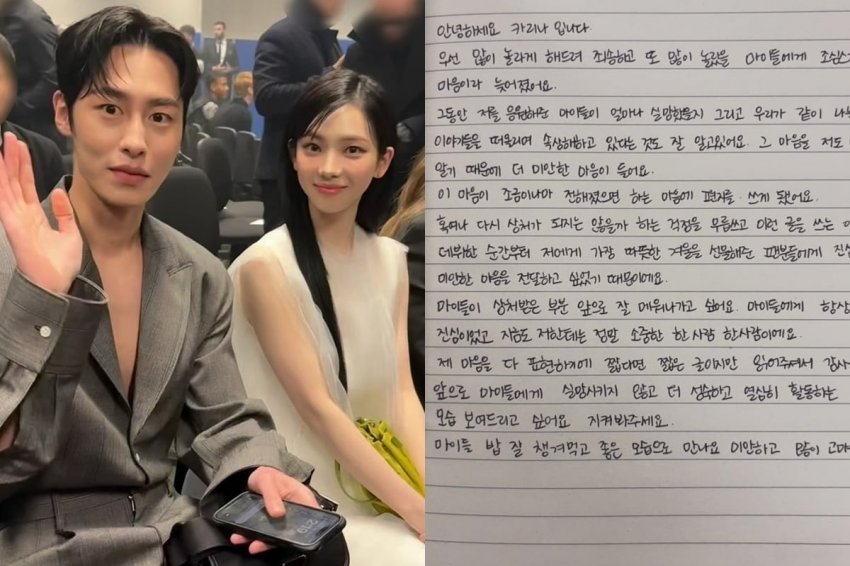 안녕하세요 카리나 입니다
우선 많이 놀라게 해드려 죄송하고 또 많이 놀랐을 마이들에게 조심스
마음이라 늦어졌어요.
그동안 저를 응원해준 마이들이 얼마나 실망했을지 그리고 우리가 같이 나눈
이야기들을 떠올리며 속상해하고 있다는것도 잘 알고있어요. 그 마음을 저도
알기 때문에 더 미안한 마음이 들어요.
이 마음이 조금이나마 전해졌으면 하는 마음에 편지를 쓰게 됐어요.
혹여나 다시 상처가 되지는 않을까 하는 걱정을 무릅쓰고 이런 글을 쓰는
데뷔한 순간부터 저에게 가장 따뜻한 겨울을 선물해준 팬분들에게 진심
미안한 마음을 전달하고 싶었기 때문이에요.
마이들이 상처받은 부분 앞으로 잘 메워나가고 싶어요. 마이들에게 항상
진심이었고 지금도 저한테는 정말 소중한 한 사람 한사람이에요.
제 마음을 다 표현하기에 짧다면 짧은 글이지만 읽어주셔서 감사
앞으로 마이들에게 실망시키지 않고 더 성숙하고 열심히 활동하는
모습 보여드리고 싶어요 지켜봐주세요.
마이들 밥 잘 챙겨먹고 좋은 모습으로 만나요 미안하고 많이 고마